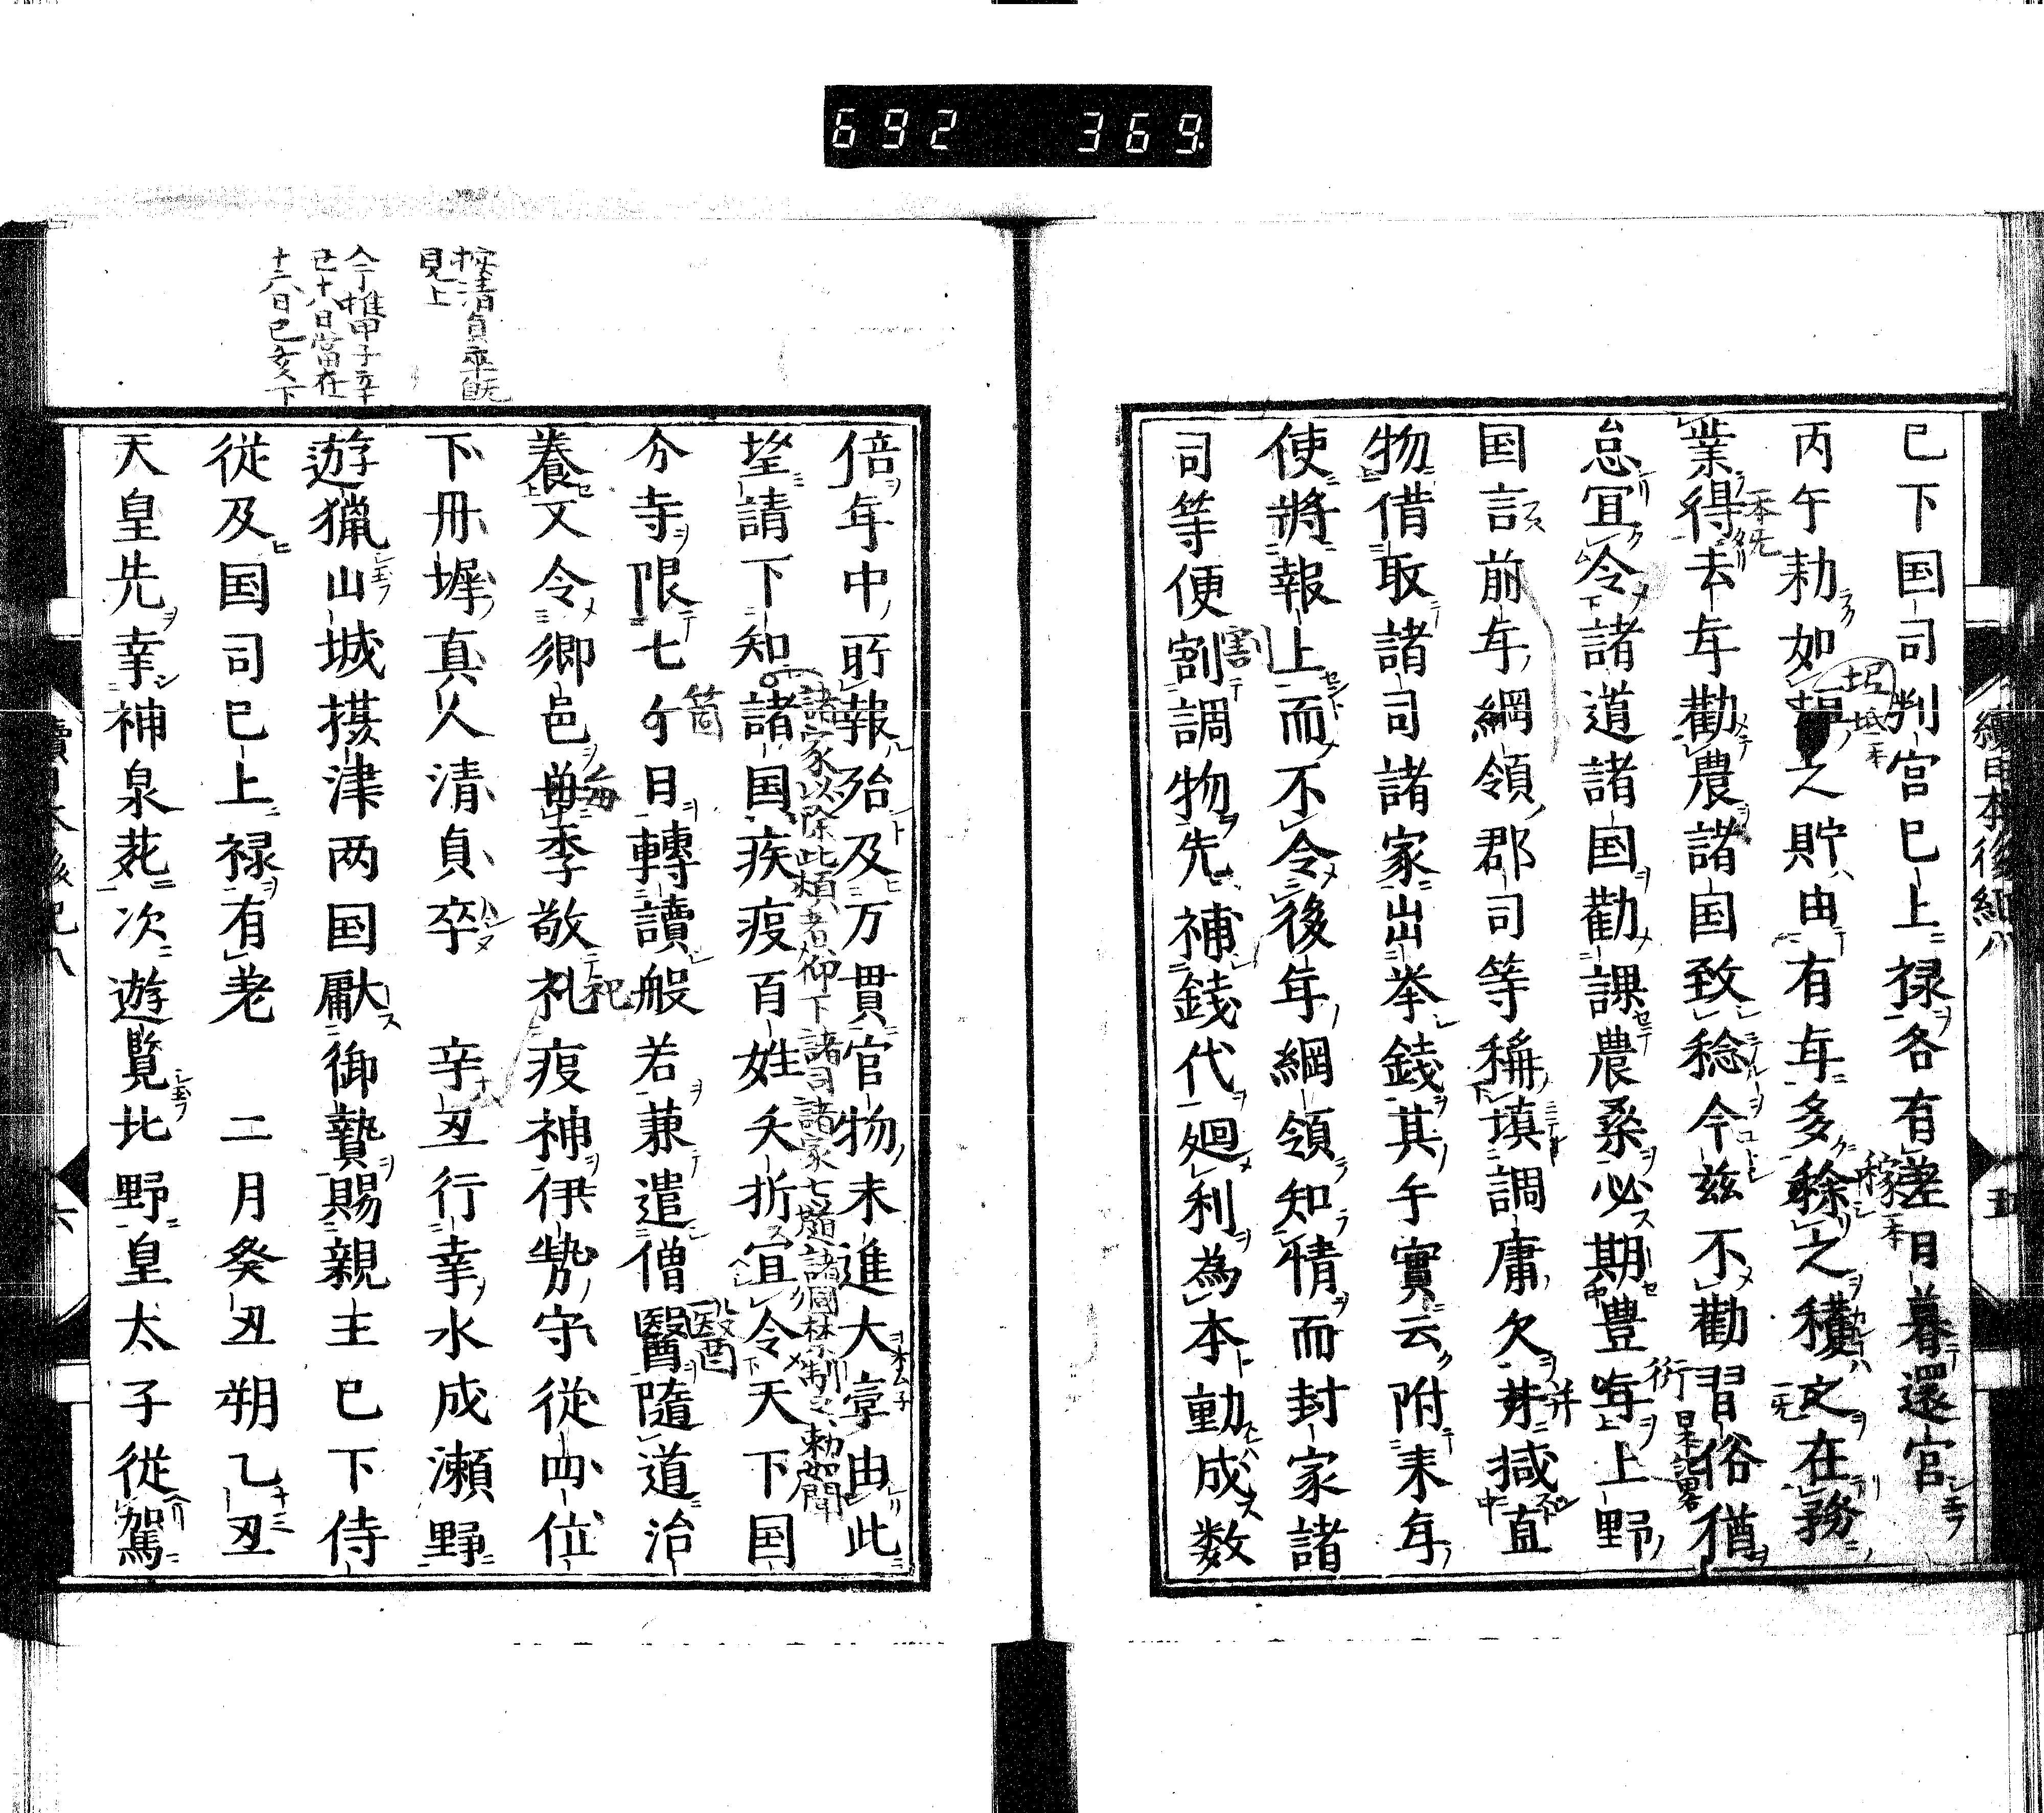 692 369
已下国司判官已上禄各有差日暮還官
丙午勅如坻之貯由有年多稌之穳文在務
業得去年勸農諸国致稔今茲不勸習俗猶
怠宜令諸道諸国勸課農桑必期豊每上野
国言前年綱領郡司等稱填調庸欠并減直
物借取諸司諸家出挙銭其年實云附来年
使將報上而不令後年綱領知情而封家諸
司等便割調物先補銭代廻利為本動成数
續日本後紀八
五
倍年中所報殆及万貫官物未進大享由此
望請下知諸国疾疫百姓夭折宜令天下国
分寺限七ケ日轉讀般若兼遣僧醫隨道治
養又令郷邑每季敬礼疫神伊勢守從四位
下丹墀真人清貞卒 辛丑行幸水成瀬野
遊獵山城摂津两国献御贄賜親王已下侍
從及国司已上禄有差 二月癸丑朔乙丑
天皇先幸神泉苑次遊覧北野皇太子從駕
諸家以除此類者仰下諸司諸家七道諸國禁制之勅如聞
按清貞卒既
見上
今推甲子辛
已十八日當在
十六日已亥下